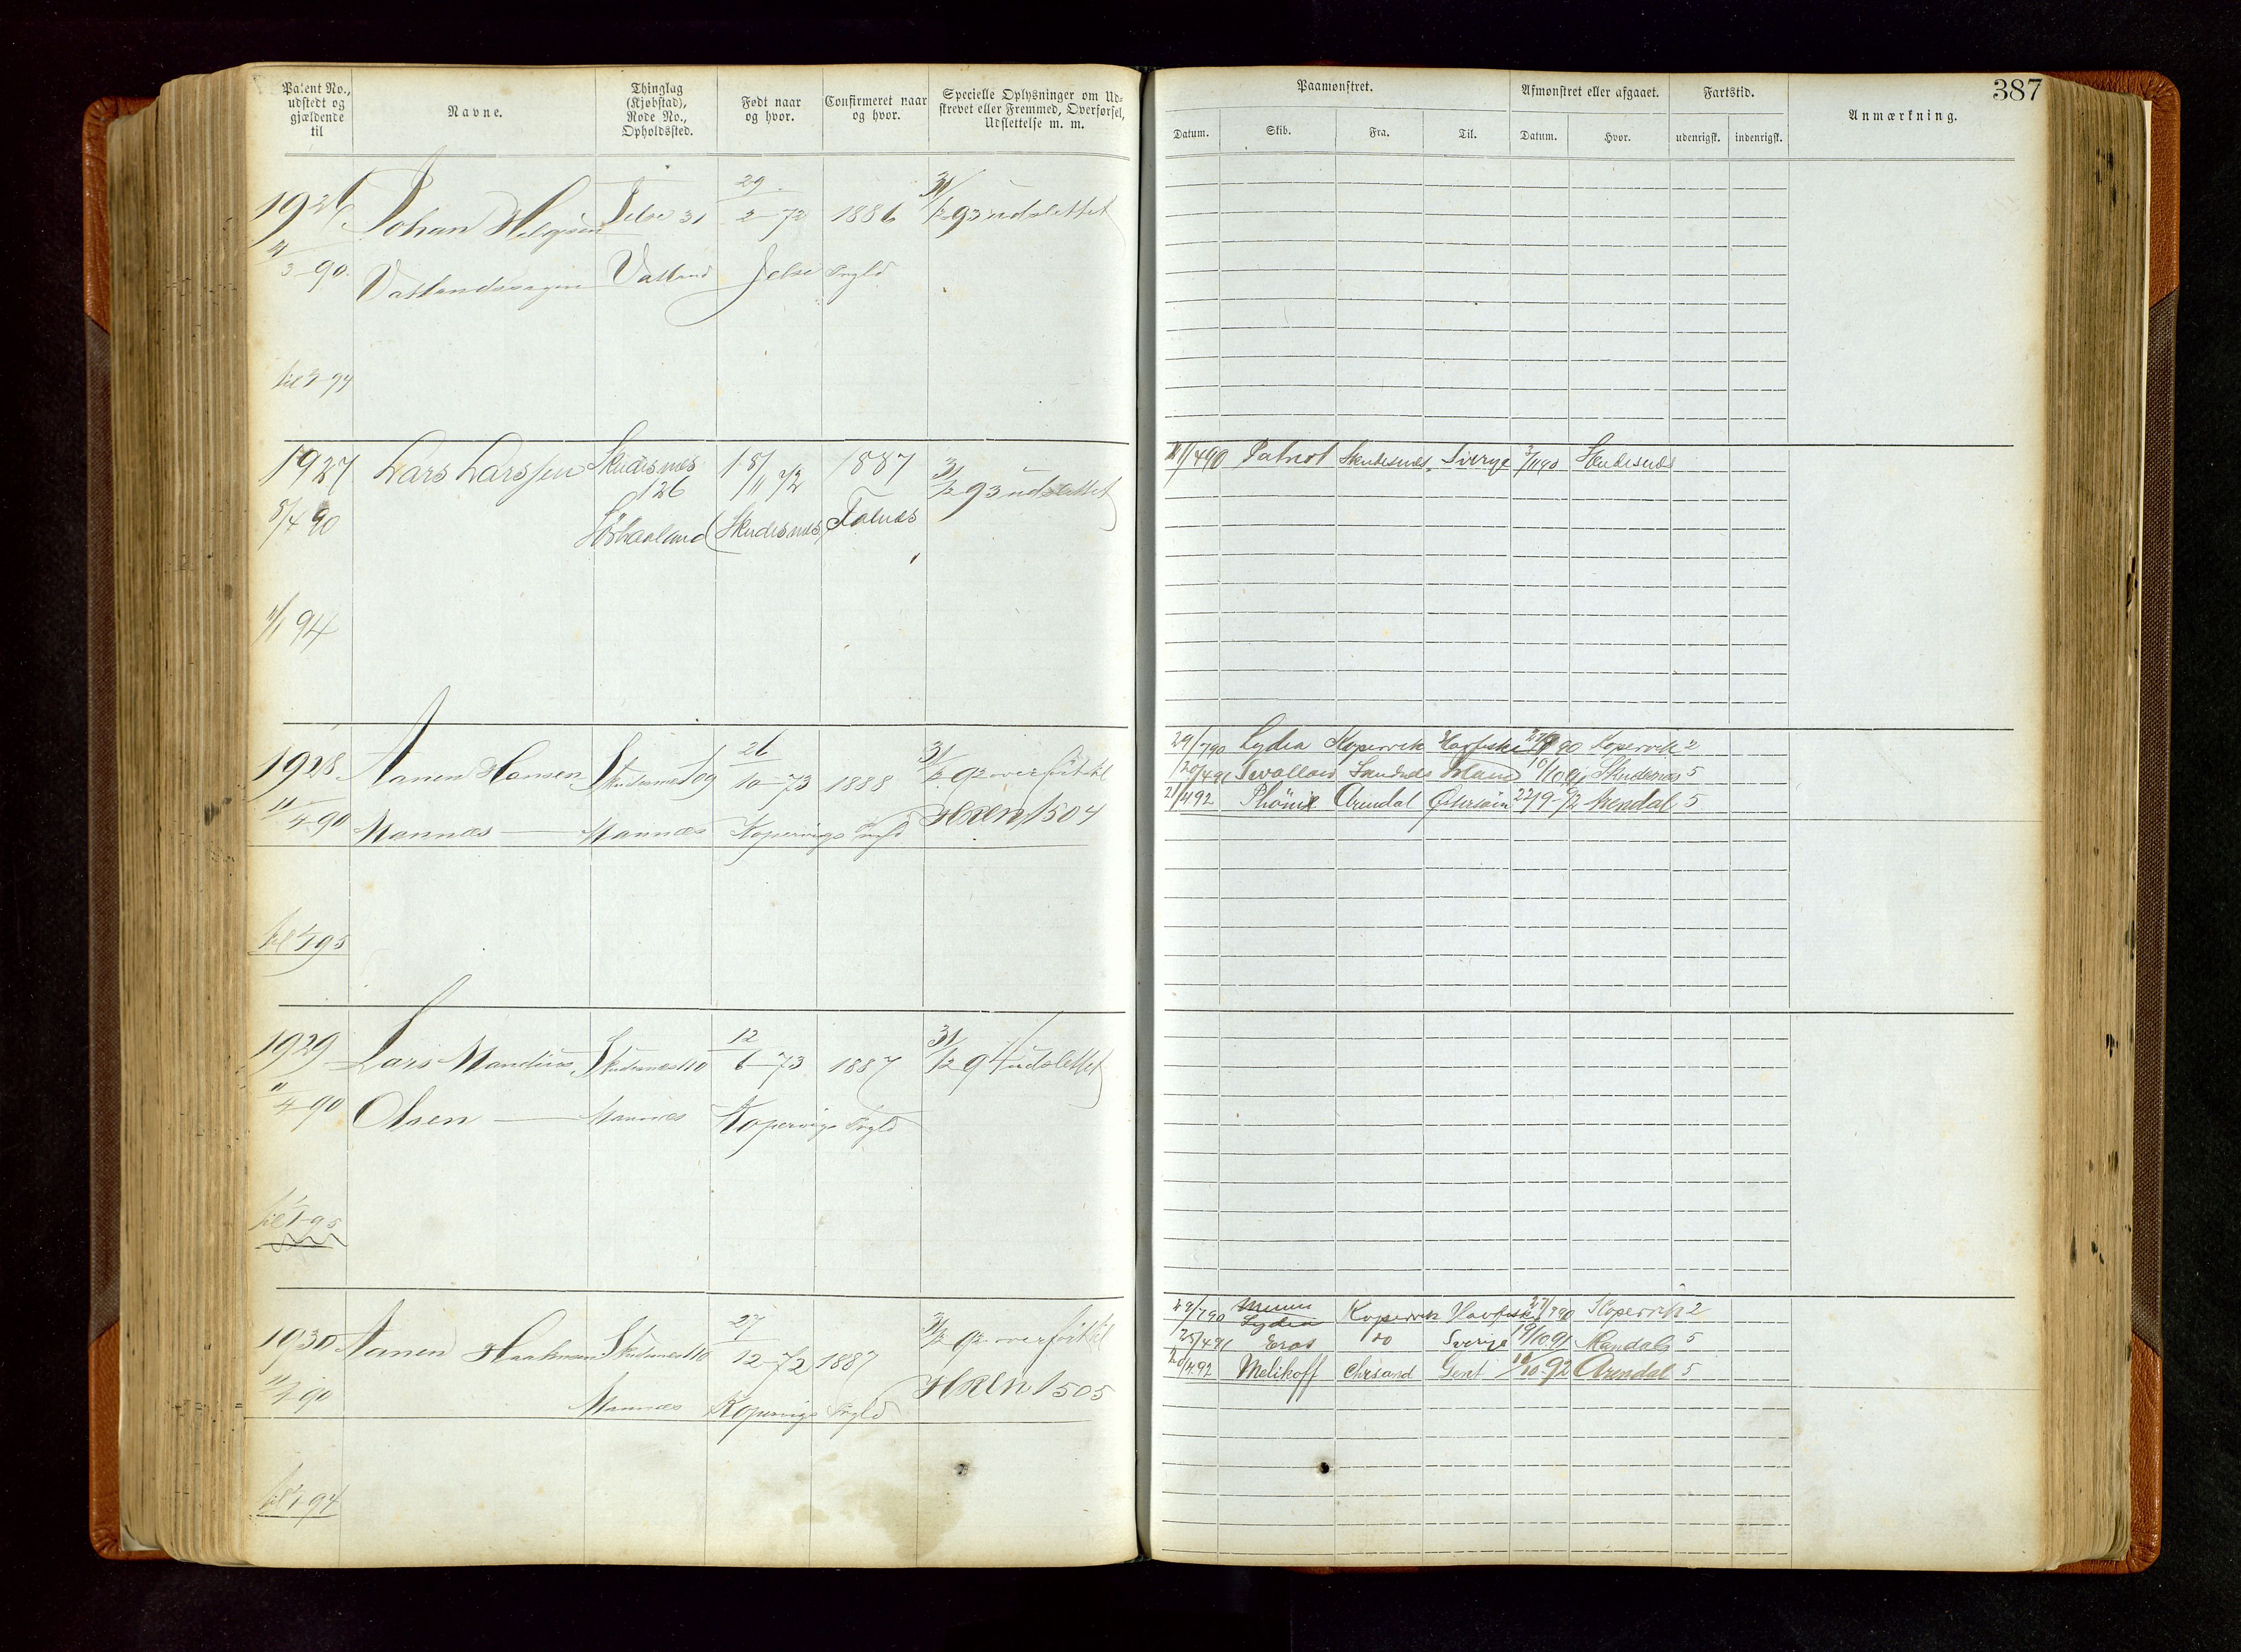 387
Patent No., udstedt og gjældende til
Navne.
Thinglag (Kjøbstad), Rode No., Opholdssted.
Født naar og hvor.
Confirmeret naar og hvor.
Specielle Oplysninger om Udskrevet eller Fremmed, Overførsel, Udslettelse m. m.
Paamønstret.
Afmønstret eller afgaaet.
Fartstid.
Anmærkning.
Datum. Skib. Fra. Til. Datum. Hvor. udenrigsk. indenrigsk.
1926 Johan Helgesen Jelse 31 29 2-72 1886 31/12 93 udslettet
3-90 Vatland Jelse
1927 Lars Larssen Skudesnes 18/11 72 1887 31/12 93 udslettet
126
8/4 90 Sørhaaland (Skudesnes) Falnæs
1/1 94
Patriot Skudesnæs Sverige Skudesnæs
1928 Aanen Hansen Skudesnes 109 26 10-73 1888 31/12 92 overført til
11/4-90 Mannæs — Mannæs Kopervig HREN, 1504
til 1/1 95
29/7 90 Lydia Kopervik Havfiske 90 Kopervik 2
20/4 91 Swallow Irland 10/10 91 Skudesnæs 5
21/4 92 Phönix Arendal Østersøen 22/9 92 Arendal 5
1929 Lars Mandius Skudesnes 110 12 6-73 1887 31/12 94 udslettet
11/4-90 Olsen — Mannæs Kopervig
til 1/1-95
1930 Aanen Haakonsen Skudesnes 110 27 12-72 1887 31/12 92 overført til
11/4-90 HREN 1505
Mannæs Kopervig
til 1/1-94
29/7 90 Lydia Kopervik Havfiske 27/ 90 Kopervik 2
25/4 91 Eros do Sverige 19/10 91 Mandal 5
20/4 92 Melikoff Chrisand Gent /10-92 Arendal 5